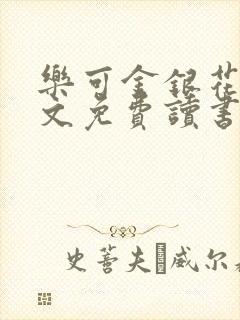 樂可金銀花
文免費讀書
史蒂夫�威尔